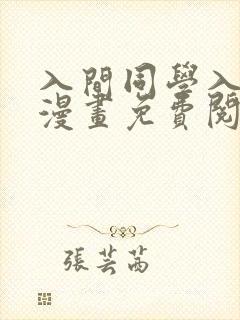 入間同學入
漫畫免費閱
張芸茜